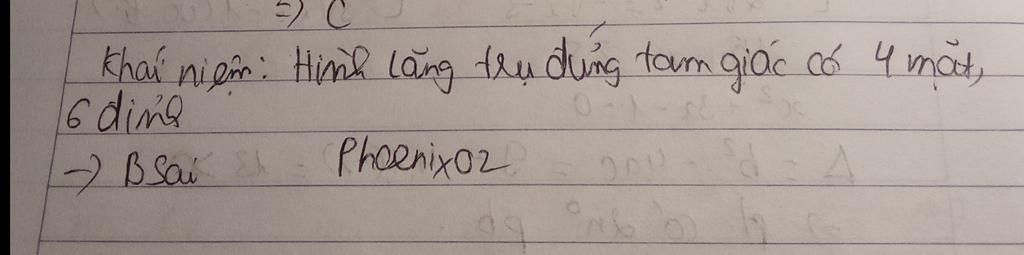 => C
Khái niệm: Hình lăng trụ đứng tam giác có 4 mặt,
6 đỉnh
-> B sai Phoenix02